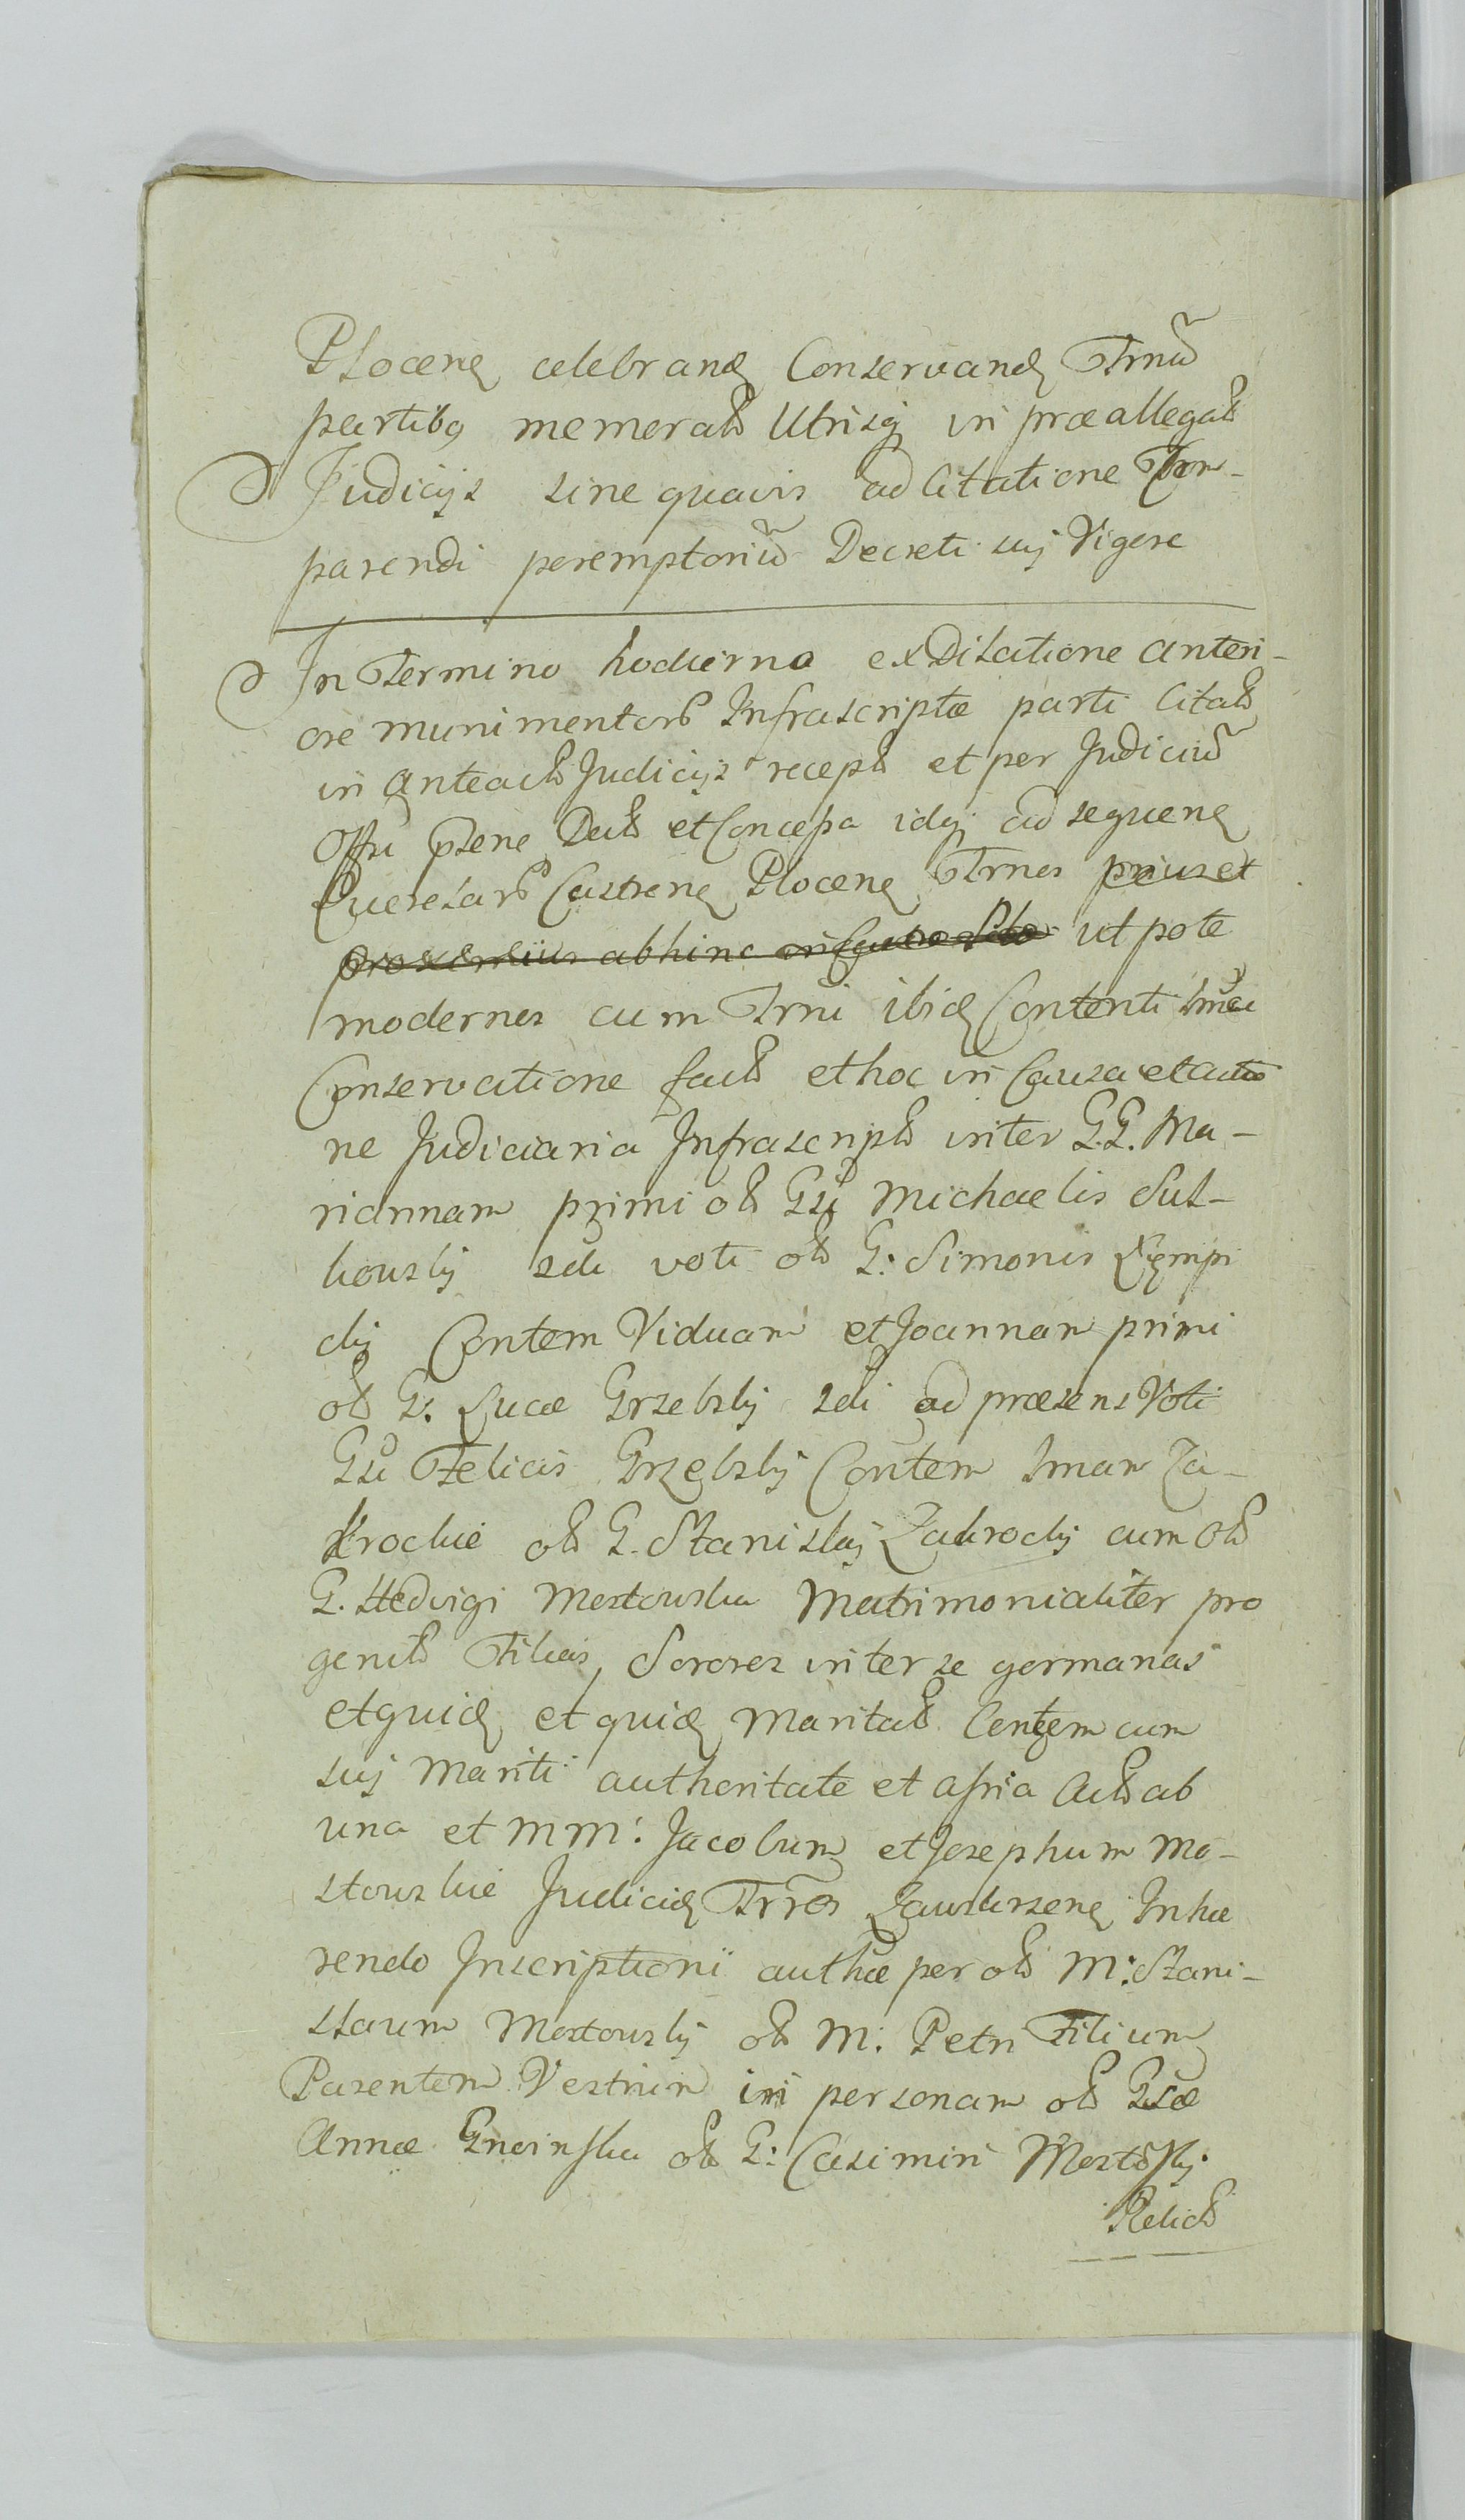 Plocen celebrand Conservand Trnū
partibq memorat Utrisq in præallegat
Judicijs sine quavis adcitatione Com-
parendi peremptoriū Decreti sui Vigore
In Termino hodierno ex Dilatione anteri-
ore munimentor Infrascriptæ parti Citat
in anteact Judicijs recept et per Judiciū
Offii psens Dat et Concessa idq ad sequen
Querelar Castren Plocen Trnos prius et
proximius abhinc utpote
modernos cum Trni ibid Contenti
Conservatione fact et hoc in Causa et actio
ne Judiciaria Infrascript inter G.G. Ma-
riannam primi ol Gsi Michaelis Sul-
kowskij sdi voti ol G: Simonis Kempi
ckij Contem Viduam et Joannam primi
ol G. Lucæ Grzebskij sdi ad præsens Voti
Gsi Felicis Grzebskij Contem Imam Za-
krockie ol G. Stanislaj Zakrockij cum ol
G. Hedvigi Mostowska Matrimonialiter pro
genit Filias, Sorores inter se germanas
et quid et quid Maritat Contem cum
sui Mariti authoritate et assria Act ab
una et MM: Jacobum et Josephum Mo-
stowskie Judicid Trrēs Zawskrzen Inhæ
rendo Inscriptioni authæ per ol M: Stani-
slaum Mostowskij ol M: Petri Filium
Parentem Vestrum in personam ol Gsæ
Annæ Gnoinska ol G: Casimiri Mostōskij
Relict